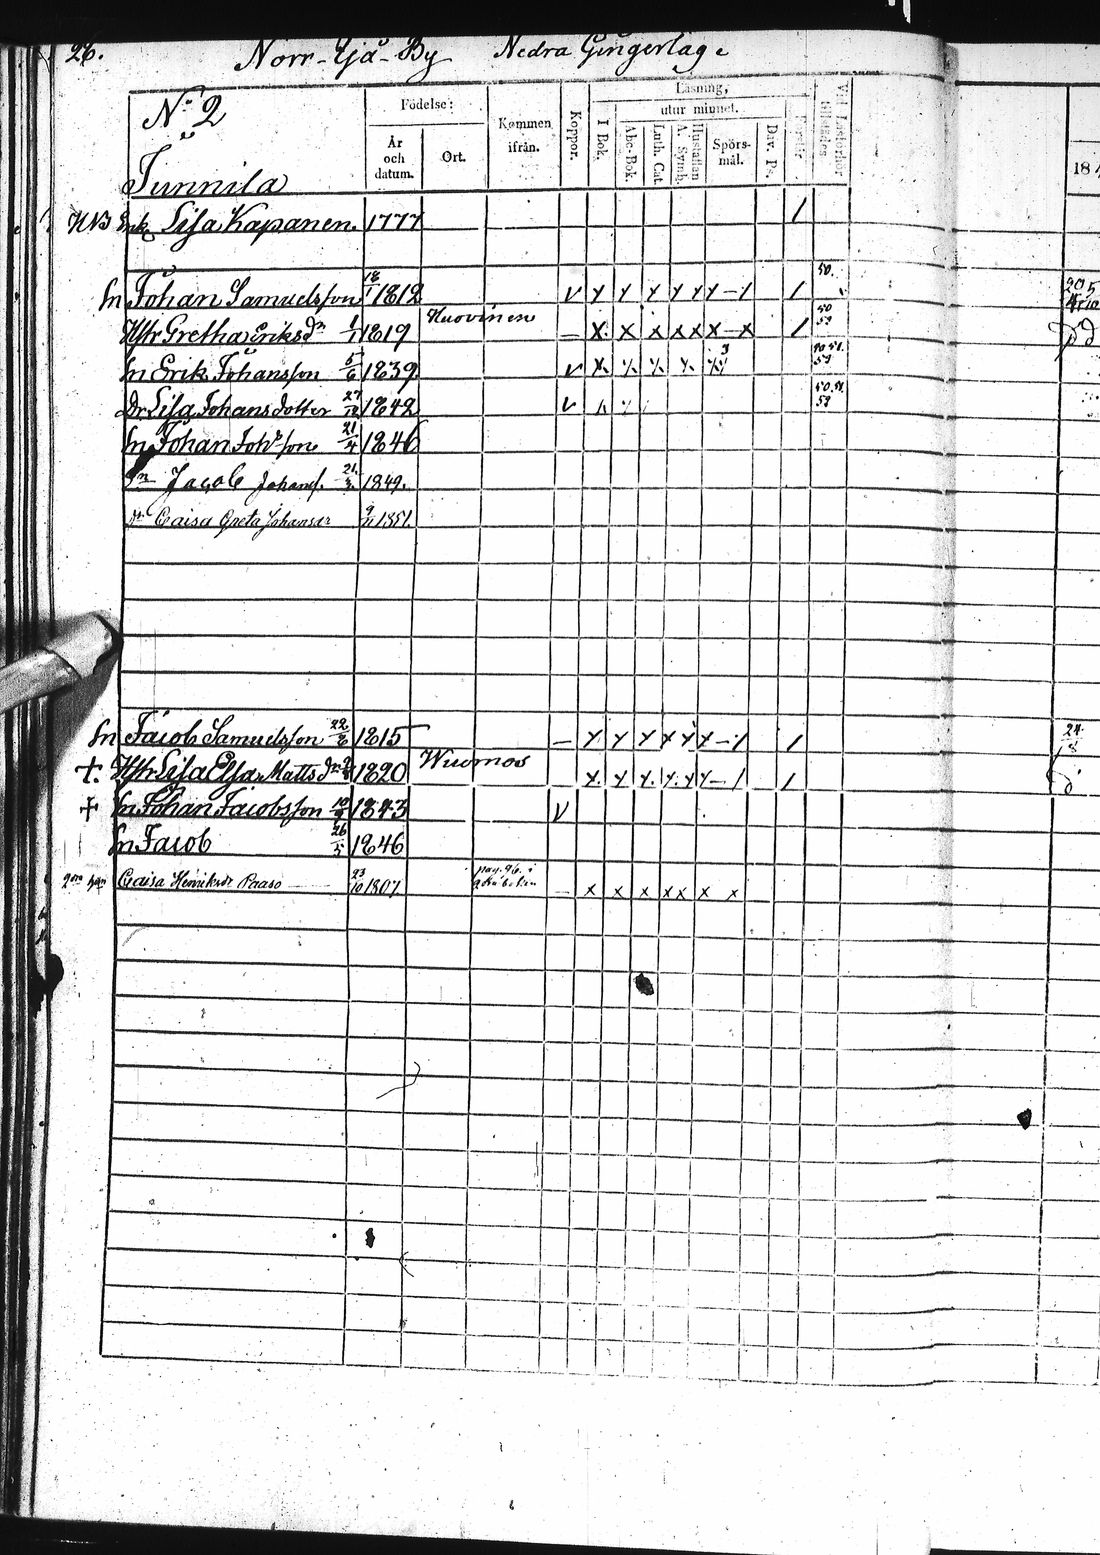 26. Norr-Ijå-By Nedra Gingerlag
No 2
Tunnila
Födelse:
År och datum.
Ort.
Kommen ifrån.
Koppor.
Läsning,
utur minnet.
I Bok.
Abc-Bok.
Luth. Cat.
A. Symb.
Hustaflan
Spörs-mål.
Dav. Ps.
Förstår.
18
NB Enk. Lisa Kapanen. 1777 /
Sn Johan Samuelsson 18/1 1812 v x x x x x x - 1 / 50.
Hstr Gretha Eriks dr 1/1 1819 Huovinen — x x x x x x - x / 50 52
Sn Erik Johansson 5/6 1839 v
Dr Lisa Johans dotter 27/12 1842 v 52
Sn Johan Johsson 21/4 1846
Sn Jacob Johans. 1849.
Dr Caisa Greta Johansdr 9/11 1851.
Sn Jacob Samuelsson 1815 — x x x x x x - 1 / 24
+ Hstr Lisa Elsa Matts dr 1820 Wuornos x x x x x x - 1 /
+ Sn Johan Jacobsson 10/9 1843 v
Sn Jacob 26/5 1846
Caisa Henriksdr Paaso 23/10 1807. pag. 96. i — x x x x x x x